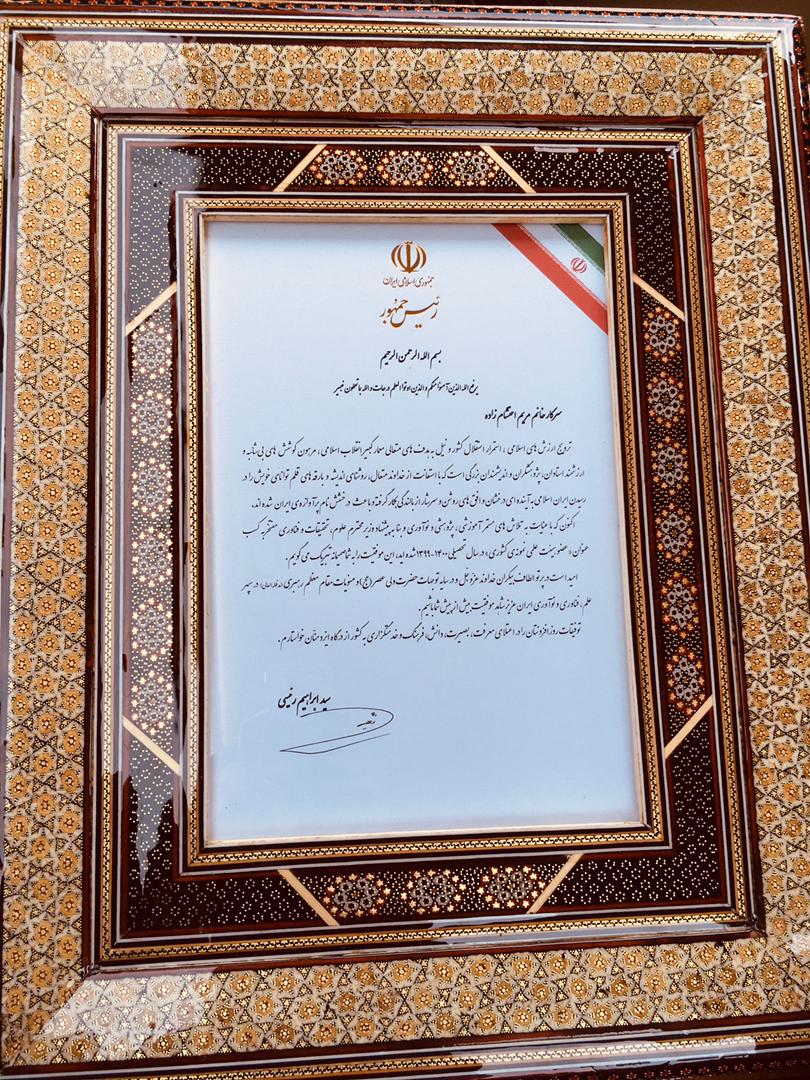 جمهوری اسلامی ایران
رئیس جمهور
بسم الله الرحمن الرحیم
یرفع الله الذین آمنوا منکم و الذین اوتوا العلم درجات و الله بما تعملون خبیر
سرکار خانم مریم احتشام زاده
ترویج ارزش های اسلامی، استمرار استقلال کشور و نیل به هدف های متعالی معمار کبیر انقلاب اسلامی، مرهون کوشش های بی شائبه و
ارزشمند استادان، پژوهشگران و اندیشمندان بزرگی است که با استعانت از خداوند متعال، روشنای اندیشه و بارقه های قلم توانای خویش را در
رسیدن ایران اسلامی به آینده ای درخشان و افق های روشن و سرشار از بالندگی بکار گرفته و باعث درخشش نام پرآوازه ی ایران شده اند.
اکنون که با عنایت به تلاش های مستمر آموزشی، پژوهشی و نوآوری و بنا به پیشنهاد وزیر محترم علوم، تحقیقات و فناوری مفتخر به کسب
عنوان «عضو هیئت علمی نمونه ی کشوری» در سال تحصیلی ۱۴۰۰-۱۳۹۹ شده اید، این موفقیت را به شما صمیمانه تبریک می گویم.
امید است در پرتو الطاف بیکران خداوند عزوجل و در سایه توجهات حضرت ولی عصر (عج) و منویات مقام معظم رهبری (مدظله العالی) در سپهر
علم، فناوری و نوآوری ایران عزیز شاهد موفقیت بیش از پیش شما باشیم.
توفیقات روزافزونتان را در اعتلای معرفت، بصیرت، دانش، فرهنگ و خدمتگزاری به کشور از درگاه ایزد منان خواستارم.
سید ابراهیم رئیسی